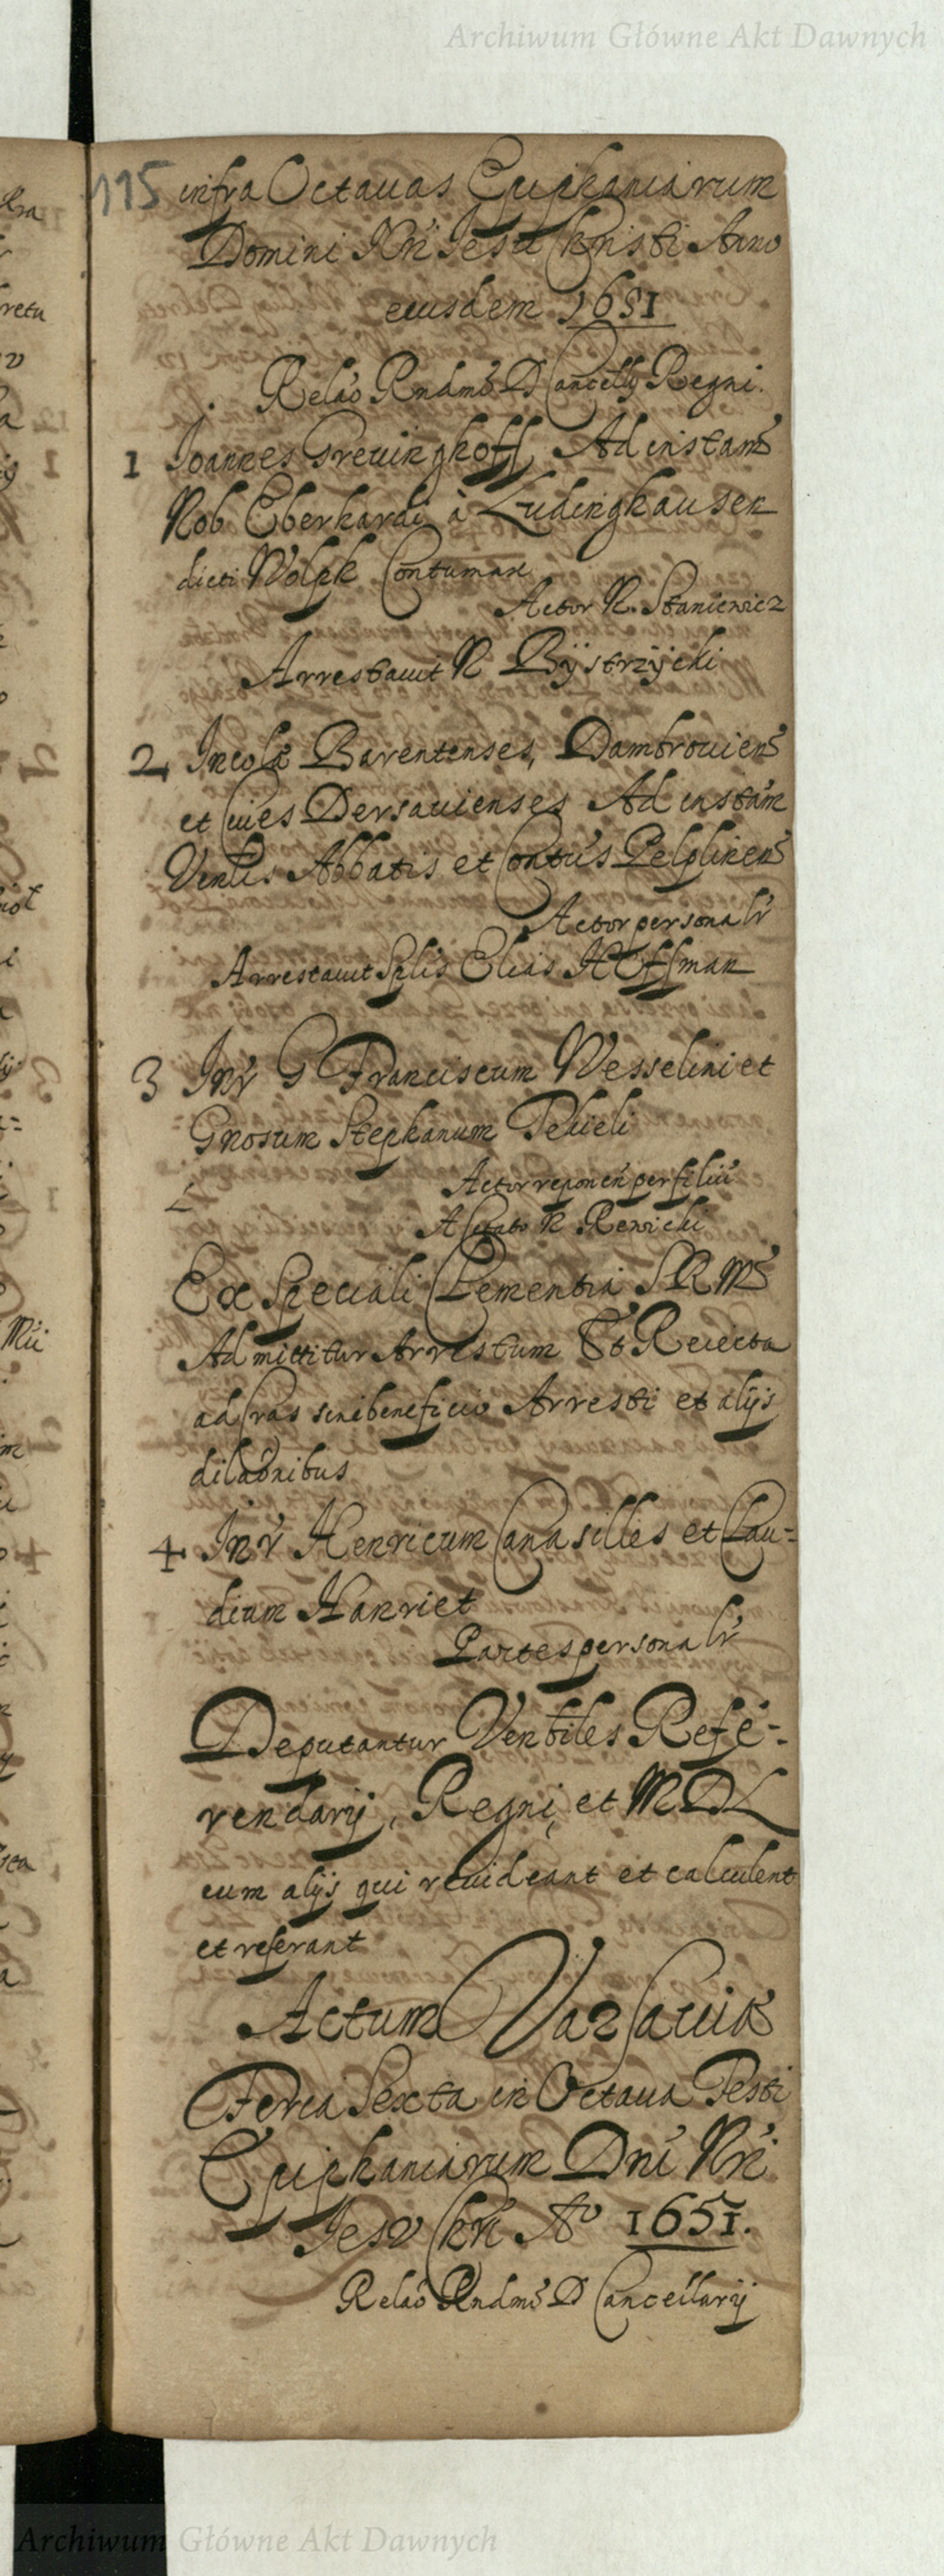 Archiwum Główne Akt Dawnych
115 infra Octauas Epiphaniarum
Domini Nri Jesu Christi Anno
eiusdem 1651
Relaõ Rndmi D Cancellij Regni.
1 Joannes Greuinghoff, Ad instam
Nob Eberhardi à Ludinghausen
dicti Wolph Contumax
Actor N. Staniewicz
Arrestauit N Bÿstrzÿcki
2 Incolæ Barentenses, Dambrouiens
et Ciues Dersauienses Ad instam
Venlis Abbatis et Contus Pelplinens
Actor personalr
Arrestauit Splis Elias Hoffman
3 Inr G Franciscum Wesselini et
Gnosum Stephanum Tekieli
Actor reponen per filiu
A N Rewicki
Ex Speciali Clementia S R Ms
Admittitur Arrestum Et Reiecta
ad Cras sine beneficio Arresti et alijs
dilaonibus
4 Inr Henricum Canasilles et Clau=
dium Hanriet
Partes personalr
Deputantur Venbiles Refe=
rendarij, Regni, et M D L
cum alijs qui reuideant et calculent
et referant
Actum Varsauiæ
Feria Sexta in Octaua Festi
Epiphaniarum Dni Nri
Jesv Chri Ao 1651.
Relaõ Rndmi D Cancellarij
Archiwum Główne Akt Dawnych